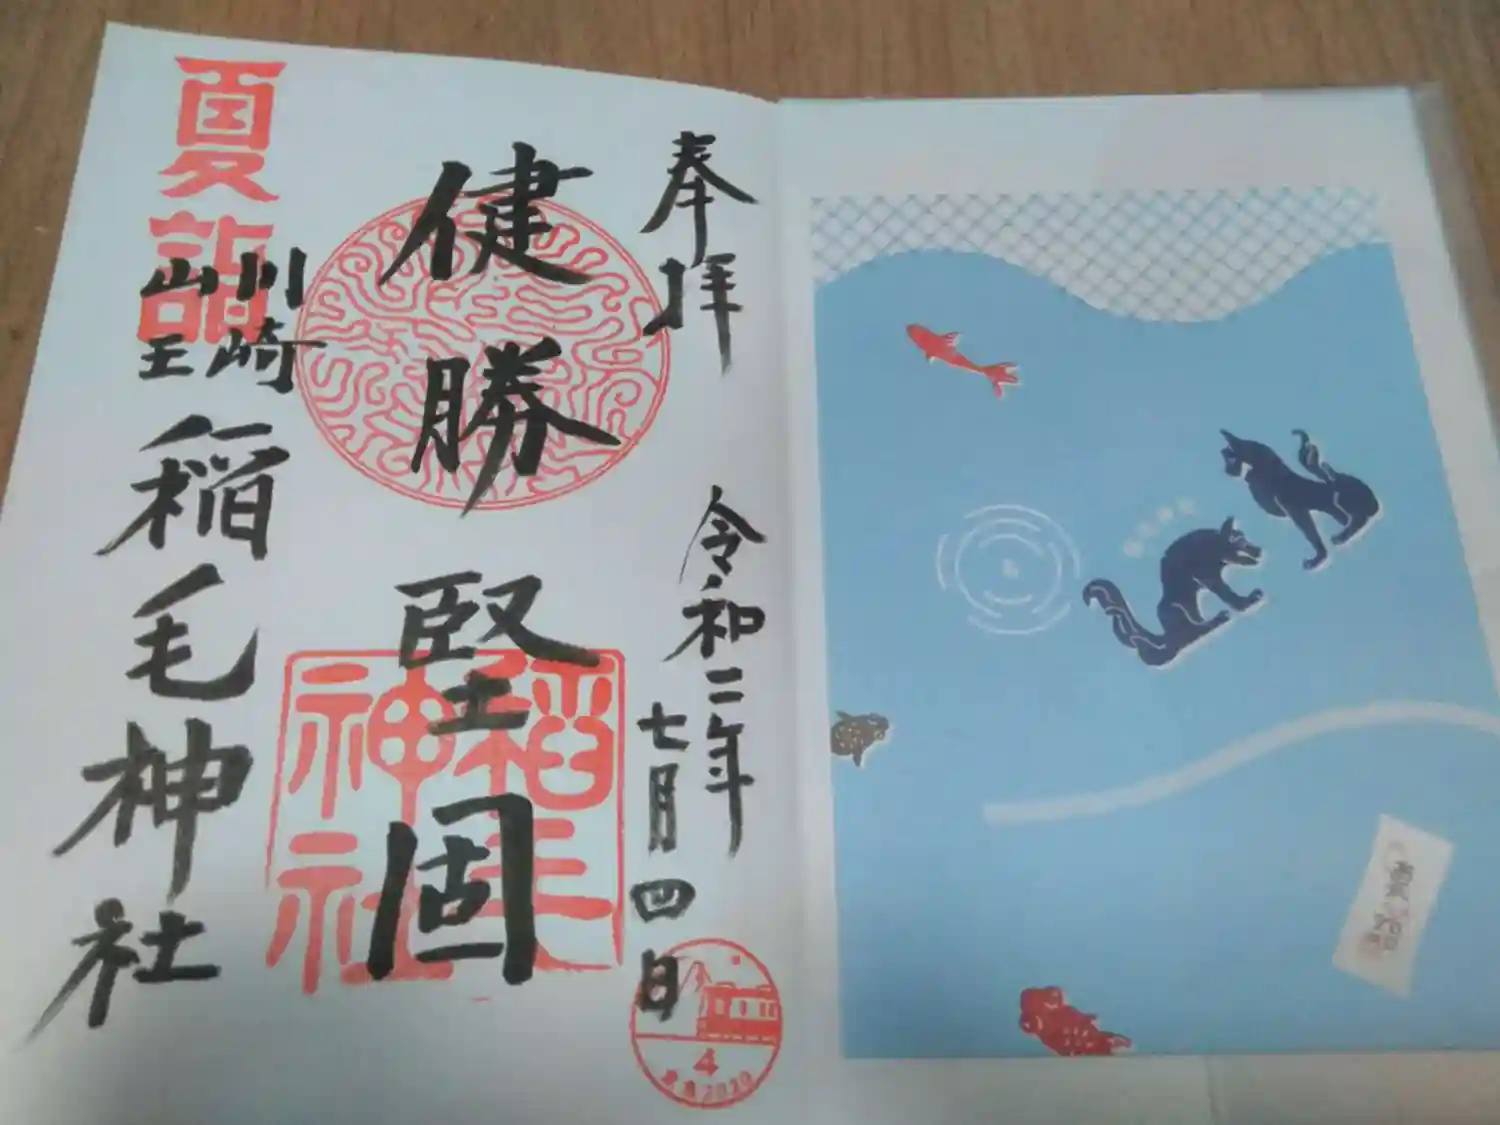 奉拝
令和二年
七月四日
健勝
堅固
川崎
山王
稲毛神社
夏詣
稲毛
神社
4
2020